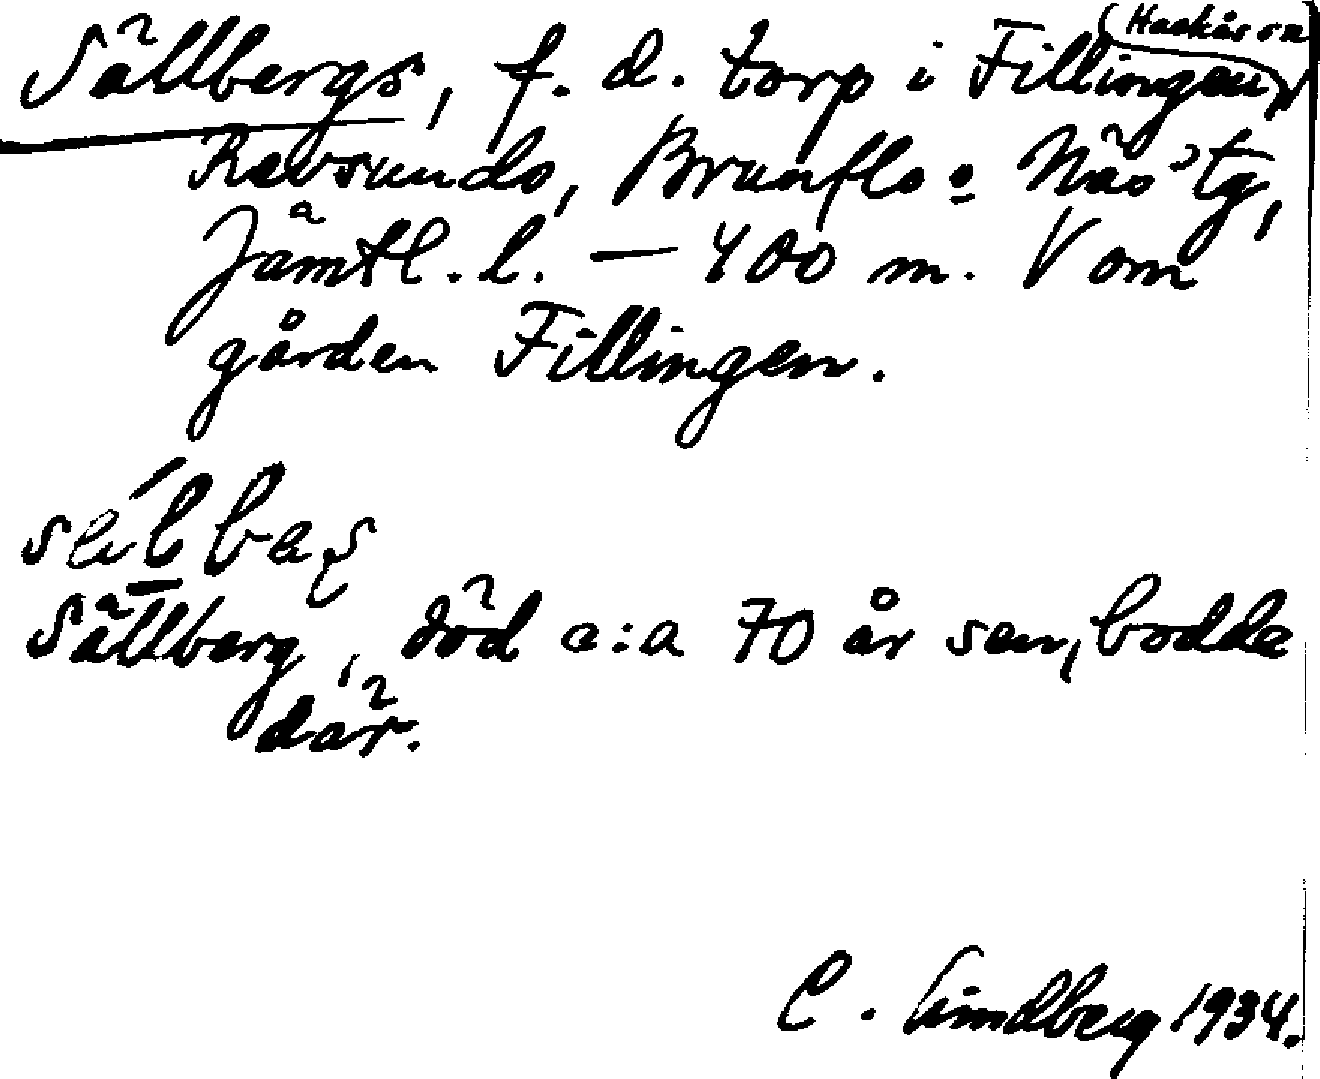 Sällbergs, f. d. torp i Fillingen, (Hackås sn)
Revsunds, Brunflo o Näs tg,
Jämtl. l. — 400 m. V om
gården Fillingen.
Sällberg, död c:a 70 år sen, bodde
där.
C. Lindberg 1934.